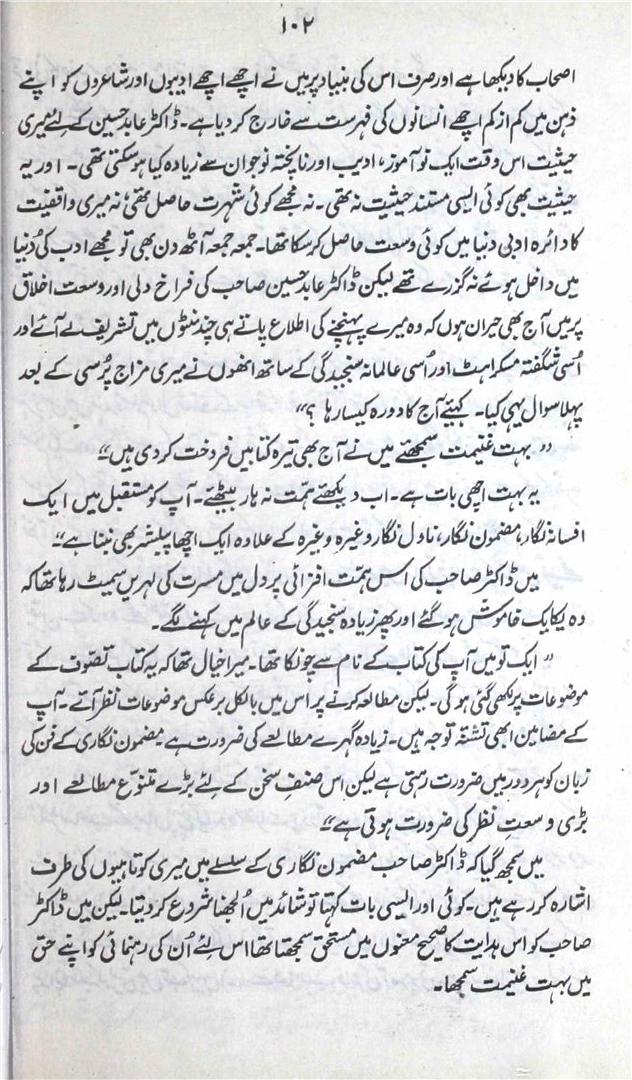 ۱۰۲
اصحاب کا دیکھا ہے اور صرف اس کی بنیاد پر میں نے اچھے اچھے ادیبوں اور شاعروں کو اپنے
ذہن میں کم از کم اچھے انسانوں کی فہرست سے خارج کر دیا ہے۔ ڈاکٹر عابد حسین کے لئے میری
حیثیت اس وقت ایک نو آموز، ادیب اور ناپختہ نوجوان سے زیادہ کیا ہو سکتی تھی۔ اور یہ
حیثیت بھی کوئی ایسی مستند حیثیت نہ تھی۔ نہ مجھے کوئی شہرت حاصل تھی نہ میری واقفیت
کا دائرہ ادبی دنیا میں کوئی وسعت حاصل کر سکا تھا۔ جمعہ جمعہ آٹھ دن بھی تو مجھے ادب کی دُنیا
میں داخل ہوئے نہ گزرے تھے لیکن ڈاکٹر عابد حسین صاحب کی فراخ دلی اور وسعت اخلاق
پر میں آج بھی حیران ہوں کہ وہ میرے پہنچنے کی اطلاع پاتے ہی چند منٹوں میں تشریف لے آئے اور
اُسی شگفتہ مسکراہٹ اور اُسی عالمانہ سنجیدگی کے ساتھ انھوں نے میری مزاج پُرسی کے بعد
پہلا سوال یہی کیا۔ کہئیے آج کا دورہ کیسا رہا ؟“
”بہت غنیمت سمجھئے میں نے آج بھی تیرہ کتابیں فروخت کر دی ہیں“
یہ بہت اچھی بات ہے۔ اب دیکھئے ہمّت نہ ہار بیٹھئے۔ آپ کو مستقبل میں ایک
افسانہ نگار، مضمون نگار، ناول نگار وغیرہ وغیرہ کے علاوہ ایک اچھا پبلشر بھی بننا ہے“
میں ڈاکٹر صاحب کی اس ہمّت افزائی پر دل میں مسرت کی لہریں سمیٹ رہا تھا کہ
وہ یکایک خاموش ہو گئے اور پھر زیادہ سنجیدگی کے عالم میں کہنے لگے۔
”ایک تو میں آپ کی کتاب کے نام سے چونکا تھا۔ میرا خیال تھا کہ یہ کتاب تصّوف کے
موضوعات پر لکھی گئی ہو گی۔ لیکن مطالعہ کرنے پر اس میں بالکل برعکس موضوعات نظر آئے۔ آپ
کے مضامین ابھی تشنۂ توجہ ہیں۔ زیادہ گہرے مطالعے کی ضرورت ہے۔ مضمون نگاری کے فن کی
زبان کو ہر دور میں ضرورت رہتی ہے لیکن اس صنفِ سخن کے لئے بڑے متنّوع مطالعے اور
بڑی وسعتِ نظر کی ضرورت ہوتی ہے“
میں سمجھ گیا کہ ڈاکٹر صاحب مضمون نگاری کے سلسلے میں میری کوتاہیوں کی طرف
اشارہ کر رہے ہیں۔ کوئی اور ایسی بات کہتا تو شائد میں اُلجھنا شروع کر دیتا۔ لیکن میں ڈاکٹر
صاحب کو اس ہدایت کا صحیح معنوں میں مستحق سمجھتا تھا اس لئے اُن کی رہنمائی کو اپنے حق
میں بہت غنیمت سمجھا۔